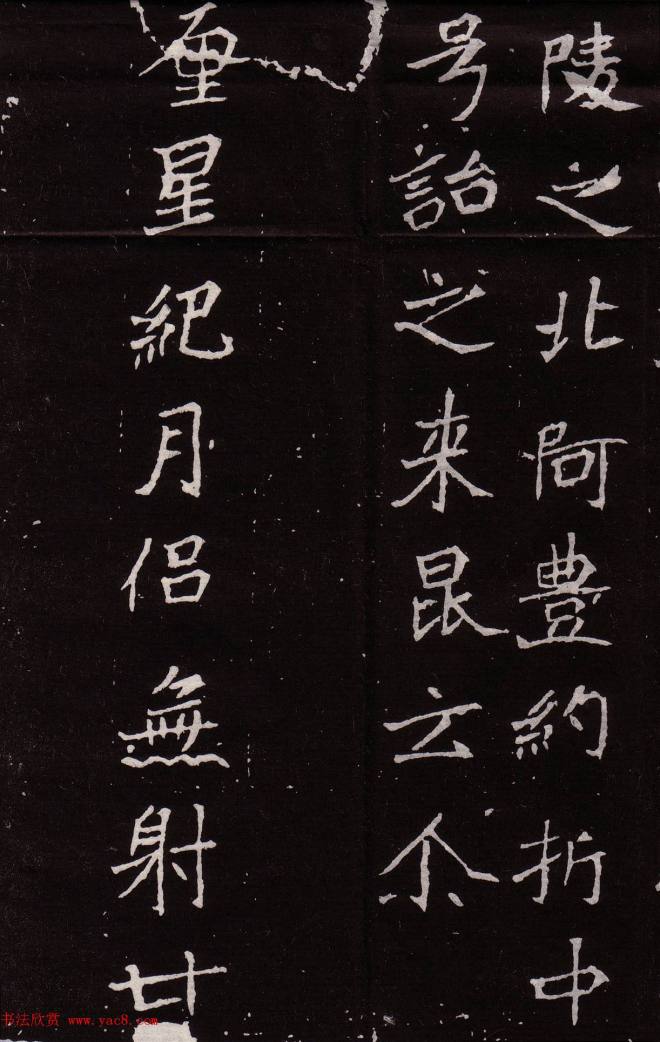 陵之北阿豊約折中
号詒之来昆云尒
星紀月侶無射廿
书法欣赏 www.yac8.com